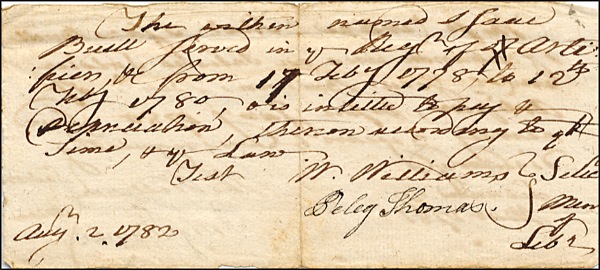 The within named Isaac
Buell served in ye Regt. of Arti
ficers, & from 17 Feby 1778, to 12th
Feby 1780, & is intitled to pay &
Depreciation, thereon according to yt
Time, & ye Law
Test W. Williams
Peleg Thomas. Selec
Men
of
Leb
Augt. 2. 1782